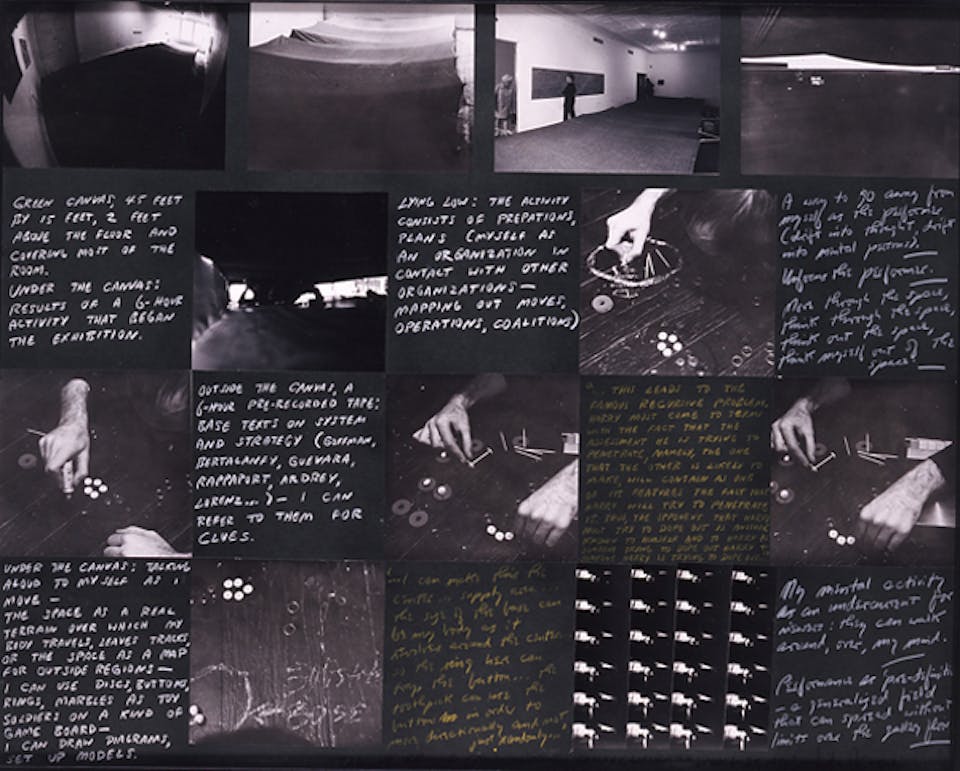 GREEN CANVAS, 45 FEET
BY 15 FEET, 2 FEET
ABOVE THE FLOOR AND
COVERING MOST OF THE
ROOM.
UNDER THE CANVAS:
RESULTS OF A 6-HOUR
ACTIVITY THAT BEGAN
THE EXHIBITION.
LYING LOW: THE ACTIVITY
CONSISTS OF PREPATIONS,
PLANS (MYSELF AS
AN ORGANIZATION IN
CONTACT WITH OTHER
ORGANIZATIONS—
MAPPING OUT MOVES,
OPERATIONS, COALITIONS)
A way to go away from
myself as the performer
(drift into thought, drift
into mental positions).
Uniforms the performer.
Move through the space,
think through the space,
think out the space,
think myself out of the
space.
OUTSIDE THE CANVAS, A
6-HOUR PRE-RECORDED TAPE:
BASE TEXTS ON SYSTEM
AND STRATEGY (GOFFMAN,
BERTALANFY, GUEVARA,
RAPPAPORT, ARDREY,
LORENZ...) — I CAN
REFER TO THEM FOR
CLUES.
"... THIS LEADS TO THE
FAMOUS RECURSIVE PROBLEM.
HARRY MUST COME TO TERMS
WITH THE FACT THAT THE
ASSESSMENT HE IS TRYING TO
PENETRATE, NAMELY, THE ONE
THAT THE OTHER IS LIKELY TO
MAKE, WILL CONTAIN AS ONE
OF ITS FEATURES THE FACT THAT
HARRY WILL TRY TO PENETRATE
IT. THUS, THE OPPONENT THAT HARRY
MUST TRY TO DOPE OUT IS ANOTHER
UNDER THE CANVAS: TALKING
ALOUD TO MYSELF AS I
MOVE —
THE SPACE AS A REAL
TERRAIN OVER WHICH MY
BODY TRAVELS, LEAVES TRACKS,
OR THE SPACE AS A MAP
FOR OUTSIDE REGIONS—
I CAN USE DISCS, BUTTONS,
RINGS, MARBLES AS TOY
SOLDIERS ON A KIND OF
GAME BOARD—
I CAN DRAW DIAGRAMS,
SET UP MODELS.
...I can make this the
center... supply area...
the size of the base can
be my body as it
revolves around the center...
so the ring here can
the button... the
toothpick can use the
button in order to
move directionally and not
just randomly...
My mental activity
as an undercurrent for
viewers: they can walk
around, over, my mind.
Performance as
— a generalized field
that can spread without
limits over the gallery floor